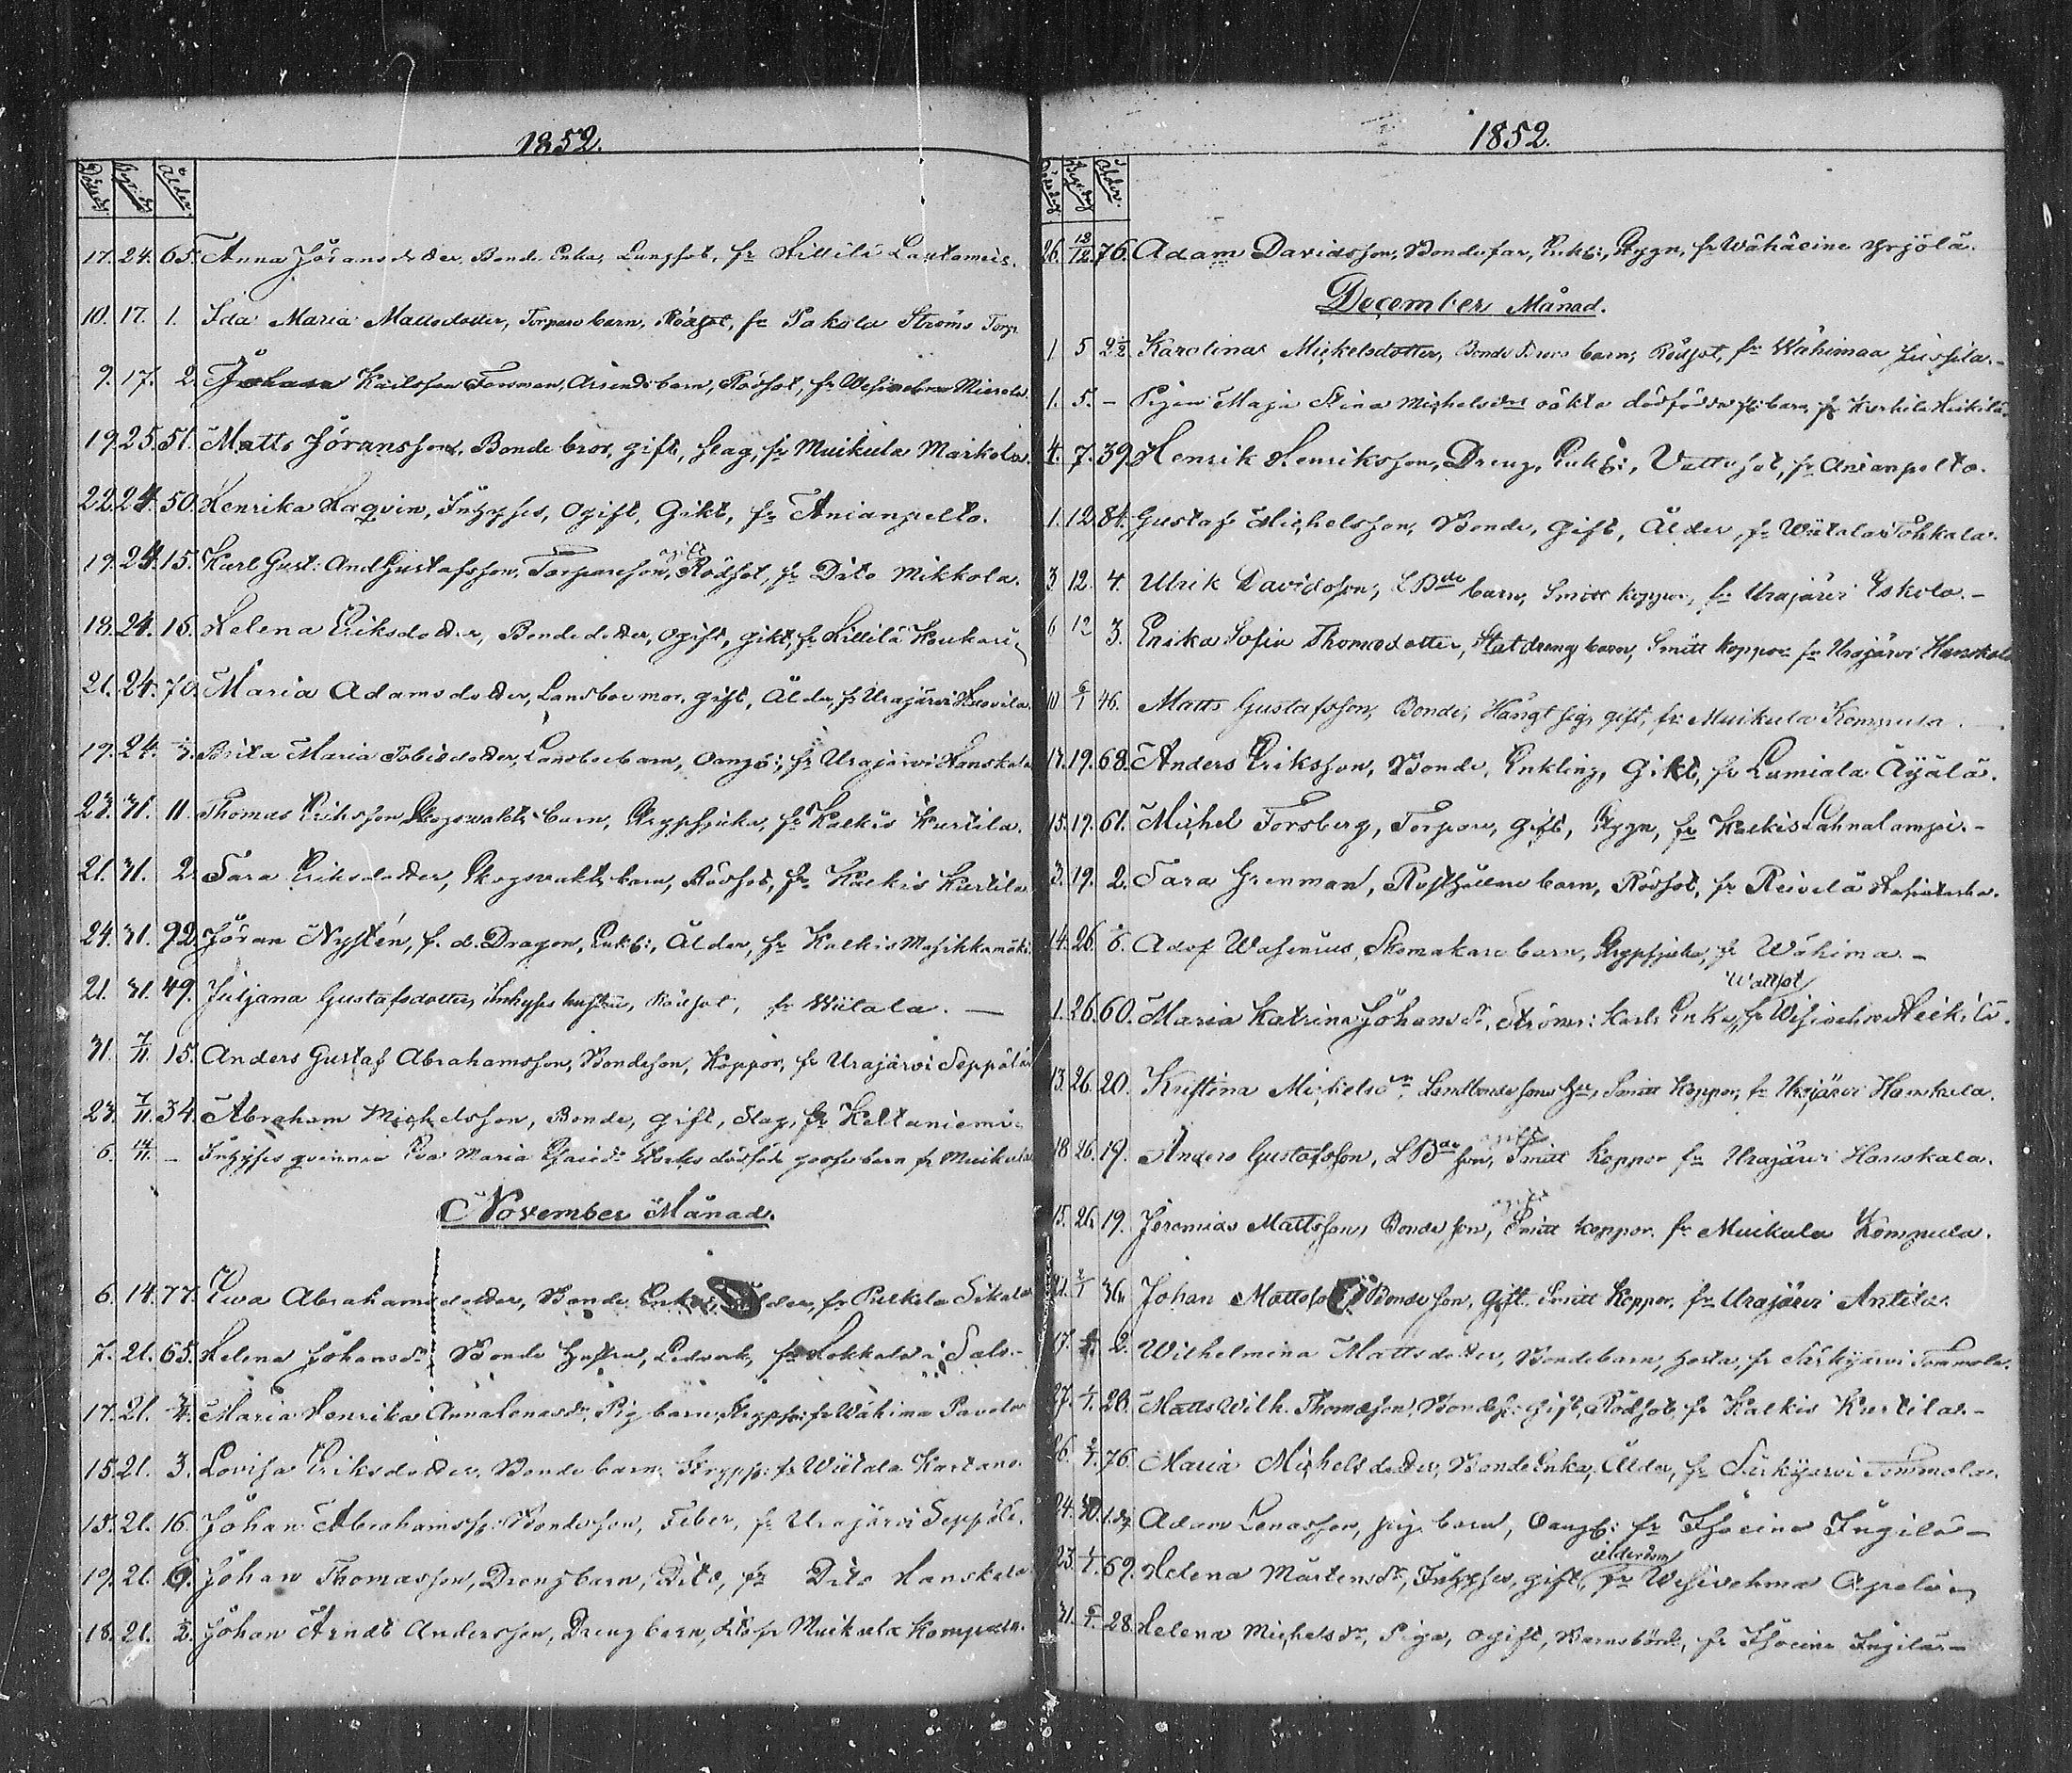 1852.
Döds d. Begr. d. Ålder.
17. 24. 65. Anna Jöransdotter, Bonde Enka, Lungsot, fr Hillilä Lautamies.
10. 17. 1. Ida Maria Mattsdotter, Torpare barn, Rödsot, fr Pakola Ströms Torp.
9. 17. 2. Johan Karlsson Forsman, Arrend: barn, Rödsot, fr Wesivehma Mierola.
19. 25. 51. Matts Jöransson, Bonde bror, gift, slag, fr Muikula Markola.
22. 24. 50. Henrika Haqvin, Inhyses, ogift, Gikt, fr Anianpelto.
19. 24. 15. Karl Gust: And Gustafsson, Torpareson, ogift Rödsot, fr Dito Mikkola.
18. 24. 16. Helena Eriksdotter, Bondedotter, ogift, gikt, fr Hillilä Koukari
21. 24. 70. Maria Adamsdotter, Landboe mor, gift, Ålder, fr Urajärvi Huovila.
19. 24. Brita Maria Tobiedotter, Landboebarn, Oangb:, fr Urajärvi Hanskala
23. 31. 11. Thomas Eriksson Skogswakt barn, Krypsjuka, fr Kalkis Kurtila.
21. 31. 2. Sara Eriksdotter, Skogsvakts barn, Rödsot, fr Kalkis Kurtila
24. 31. 92. Jöran Nystén, f. d. Dragon, Enkl:, Ålder, fr Kalkis Masikkamäki
21. 31. 49. Juljana Gustafsdotter, Inhyses hustru, Rödsot, fr Wiitala. —
31. 7/11 15. Anders Gustaf Abrahamsson, Bondeson, Koppor, fr Urajärvi Seppälä
23. 7/11 34. Abraham Michelsson, Bonde, gift, Slag, fr Keltaniemi.
6. 14/11 — Inhyses qvinnan Eva Maria dödföd gossebarn fr Muikula
November Månad.
6. 14. 77. Ewa Abrahamsdotter, Bonde Enka, Ålder, fr Purkela Sikala
7. 21. 65. Helena Johansdr Bonde Hustru, Ledverk, fr Hokkala Salo.
17. 21. Maria Henrika Annalenasdr, Pig barn, Kryps: fr Wähima Pavola
15. 21. 3. Lovisa Eriksdotter, Bonde barn, Kryps: fr Wiitala Kartano.
15. 21. 16. Johan Abrahamss: Bondeson, Feber, fr Urajärvi Seppälä.
19. 21. 6. Johan Thomasson, Drengbarn, Dito, fr Dito Hanskala
18. 21. Johan Arndt Andersson, Dreng barn, dito fr Muikula Kompula.
1852.
Döds dag Begr. dag Ålder.
26. 12/12 76. Adam Davidsson, Bondefar, Enkl:, Rygn, fr Wähäeine Yrjölä.
December Månad.
1 5 Karolina Mickelsdotter, Bonde barn, Rödsot, fr Wähimaa Jussila. -
1. 5. - Pigan Maja Stina Michelsdrs oäkta dödfödde barn fr Kurhila Heikilä.
4. 7. 39. Henrik Henriksson, Dreng, Enkl:, Vattusot, fr Anianpelto.
1. 12. 84. Gustaf Michelsson, Bonde, gift, Ålder, fr Wiitala Tohkala.
3 12. 4. Ulrik Davidsson, LBde barn, Smitt koppor, fr Urajärvi Eskola. -
6 12 3. Erika Sofia Thomasdotter, Statdreng barn, Smitt koppor fr Urajärvi Hanskala
10 6/1 46. Matts Gustafsson, Bonde, Hängt sig, gift, fr Muikula Kompula.
17. 19. 68. Anders Eriksson, Bonde, Enkling, Gikt, fr Lumiala Äijälä.
15. 19. 61. Michel Forsberg, Torpare, gift, Rygn, fr Kalkis Lahnalampi. -
3. 19. 2. Sara Grenman, Rusthållare barn, Rödsot, fr Reivilä
14. 26. 6. Adof Wasenius, Skomakare barn, Krypsjuka, fr Wähima. -
1. 26. 60. Maria Katrina Johansdr, Ströms: Karls Enka, Wattsot fr Wesivehma Heikilä.
13. 26. 20. Kristina Michelsdr, Landbondesons Hu, Smitt Koppor, fr Urajärvi Hanskala.
18 26. 19. Anders Gustafsson, LBde son, ogift Smitt koppor fr Urajärvi Hanskala.
15. 26. 19. Jeremias Mattsson, Bonde son, ogift Smitt koppor. fr Muikula Kompula.
36. Johan Mattsson Bonde son, gift. Smitt Koppor, fr Urajärvi Antila.
17. 2. Wilhelmina Mattsdotter, Bondebarn, hosta, fr Särkijärvi Tommola.
27. 28. Matts Wilh. Thomasson, Bondes: gift, Rödsot, fr Kalkis Kurtila. -
26. 76. Maria Michelsdotter, Bonde Enka, Ålder, fr Särkijärvi Tommola.
24. Adam Lenasson, pig barn, Oangb: fr Isoeine Ingilä -
23. 69. Helena Mårtensdr, Inhyses, gift, ålderdom fr Wesivehma Apela
31. 6/1 28. Helena Michelsdr, Piga, ogift, Barnsbörd, fr Isoeine Ingilä -